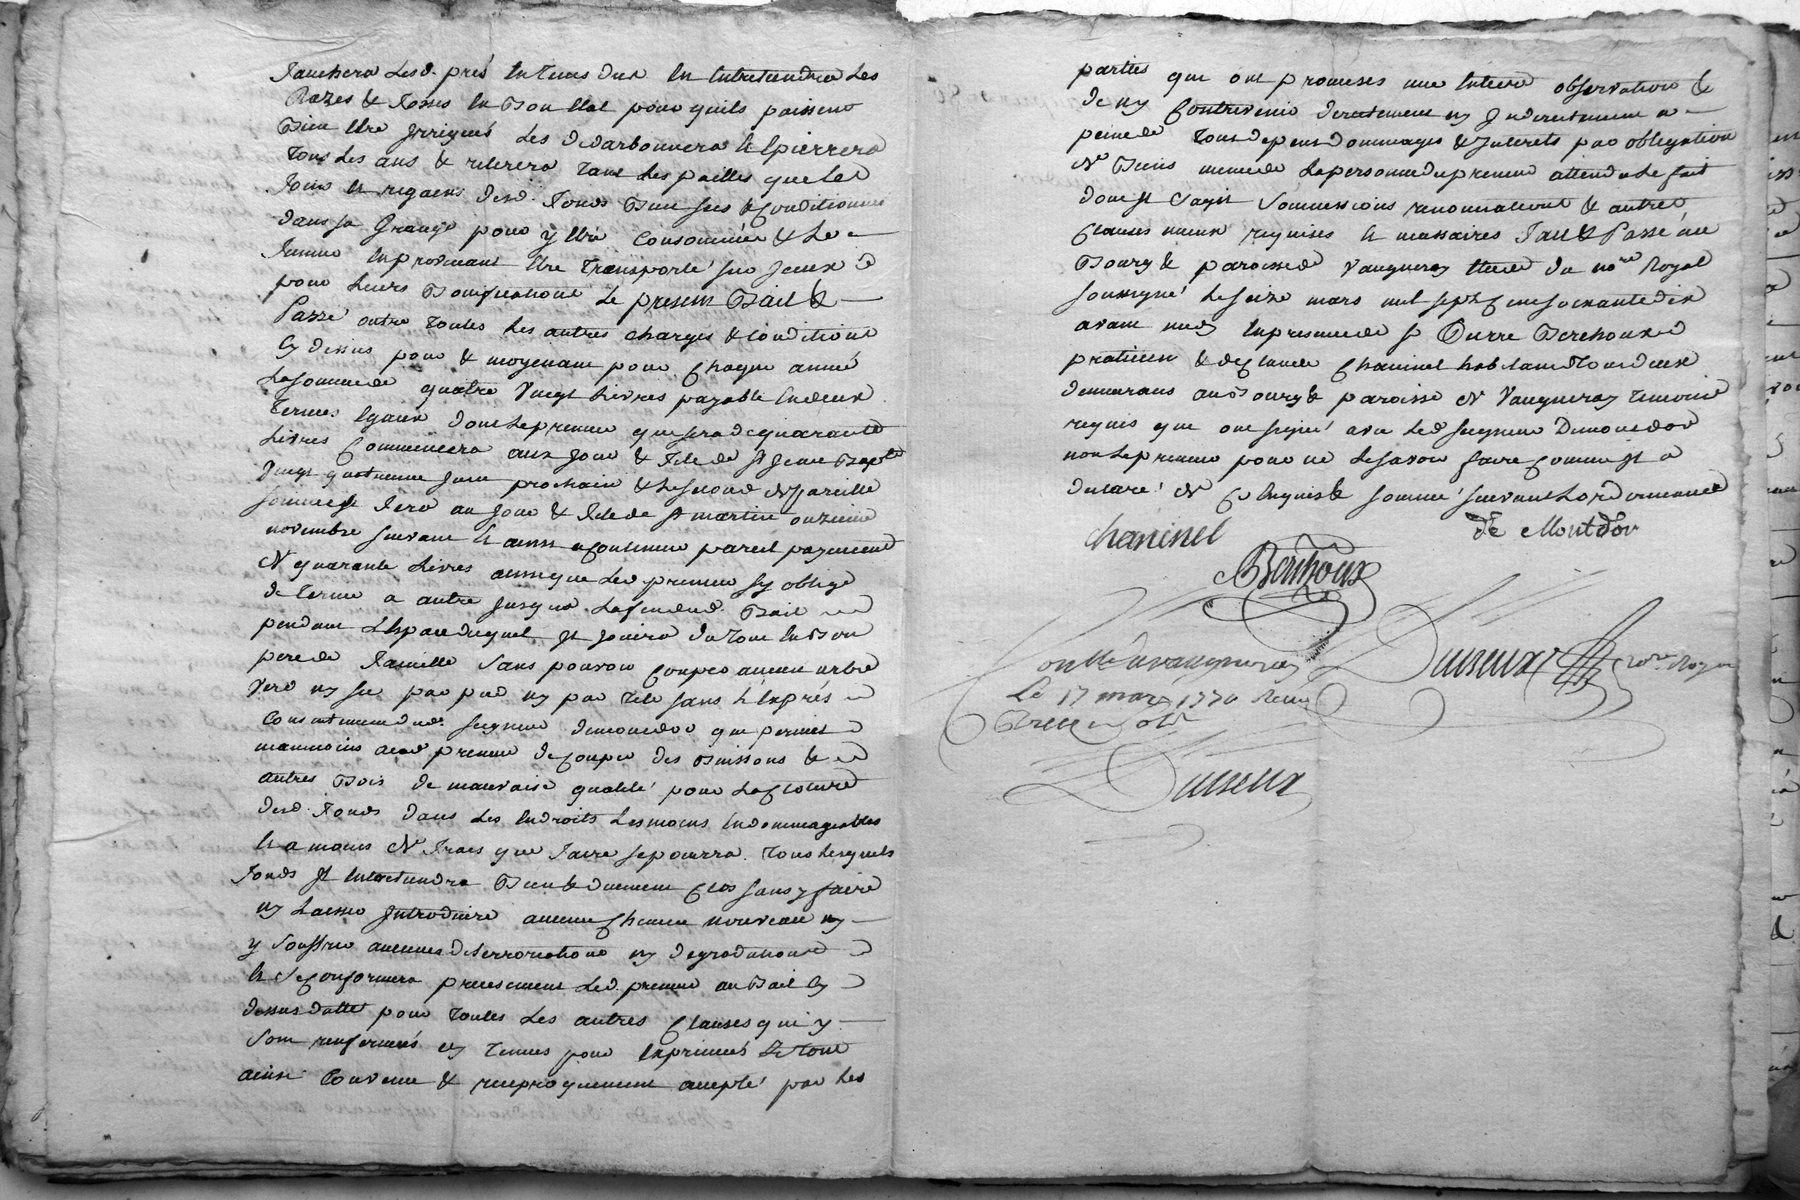 fauchera lesd. prés en tems dux en entretiendra les
Razes & fossés en bon etat pour quils puissent
bien etre jrrigués les desarbonnera & epierrera
tous les ans & retirera tant les pailles que les
foins & regains desd. fonds bien secs & conditionnés
dans sa grange pour y etre consommés & le
fumier en provenant etre transporté sur jceux
pour leurs bonifications le present Bail &
Passé outre toutes les autres charges & conditions
cy dessus pour & moyenant pour chaque année
la somme de quatre vingt livres payable en deux
termes egaux dont le premier qui sera de quarante
livres commencera aux jour & fete de st jean Bapte
vingt quatrieme juin prochain & le second de pareille
somme se fera au jour & fete de st martin onzieme
novembre suivant & ainsi a continuer pareil payement
de quarante livres ainsi que led preneur sy oblige
de terme a autre jusqua la fin dud. Bail
pendant lespace duquel jl jouira du tout en bon
pere de famille sans pouvoir couper aucun arbre
verd ny sec par pied ny par tete sans lexprés
consentement dud. seigneur demontdor qui permet
neanmoins aud preneur de couper des buissons &
autres Bois de mauvaise qualité pour la cloture
desd. fonds dans les endroits les moins endommageables
& a moins de frais que faire se pourra. tous lesquels
fonds jl entretiendra bien & duement clos sans y faire
ny laisser jntroduire aucun chemin nouveau ny
y souffrir aucunes deterriorations ny degradations
& se conformera precisement led. preneur au Bail cy
dessus datté pour toutes les autres clauses qui y
sont renfermées cy tenues pour exprimées Le tout
ainsi convenu & reciproquement accepté par les
parties qui ont promises une entiere observation &
de ny contrevenir directement ny jndirectement a
peine de tous depens dommages & jnterets par obligation
de biens meme de la personne du preneur attendu le fait
dont jl sagit soumissions renonciations & autres
clauses mieux requises & necessaires fait & Passé au
Bourg & paroisse de vaugneray etude du nore Royal
soussigné le seize mars mil sept cens soixante dix
avant midy en presence de sr Pierre Berthoux
praticien & de Claude Chaninel habitant tous deux
demeurans au Bourg & paroisse de vaugneray temoins
requis qui ont signé avec led seigneur Demontdor
non le preneur pour ne le savoir faire comme jl a
declaré de ce enquis & sommé suivant lordonnance
Chaninel
de Montdor
Berthoux
Duiseux nore Royal
Conlle a vaugneray
Le 17 mars 1770 Reçu
Duiseux